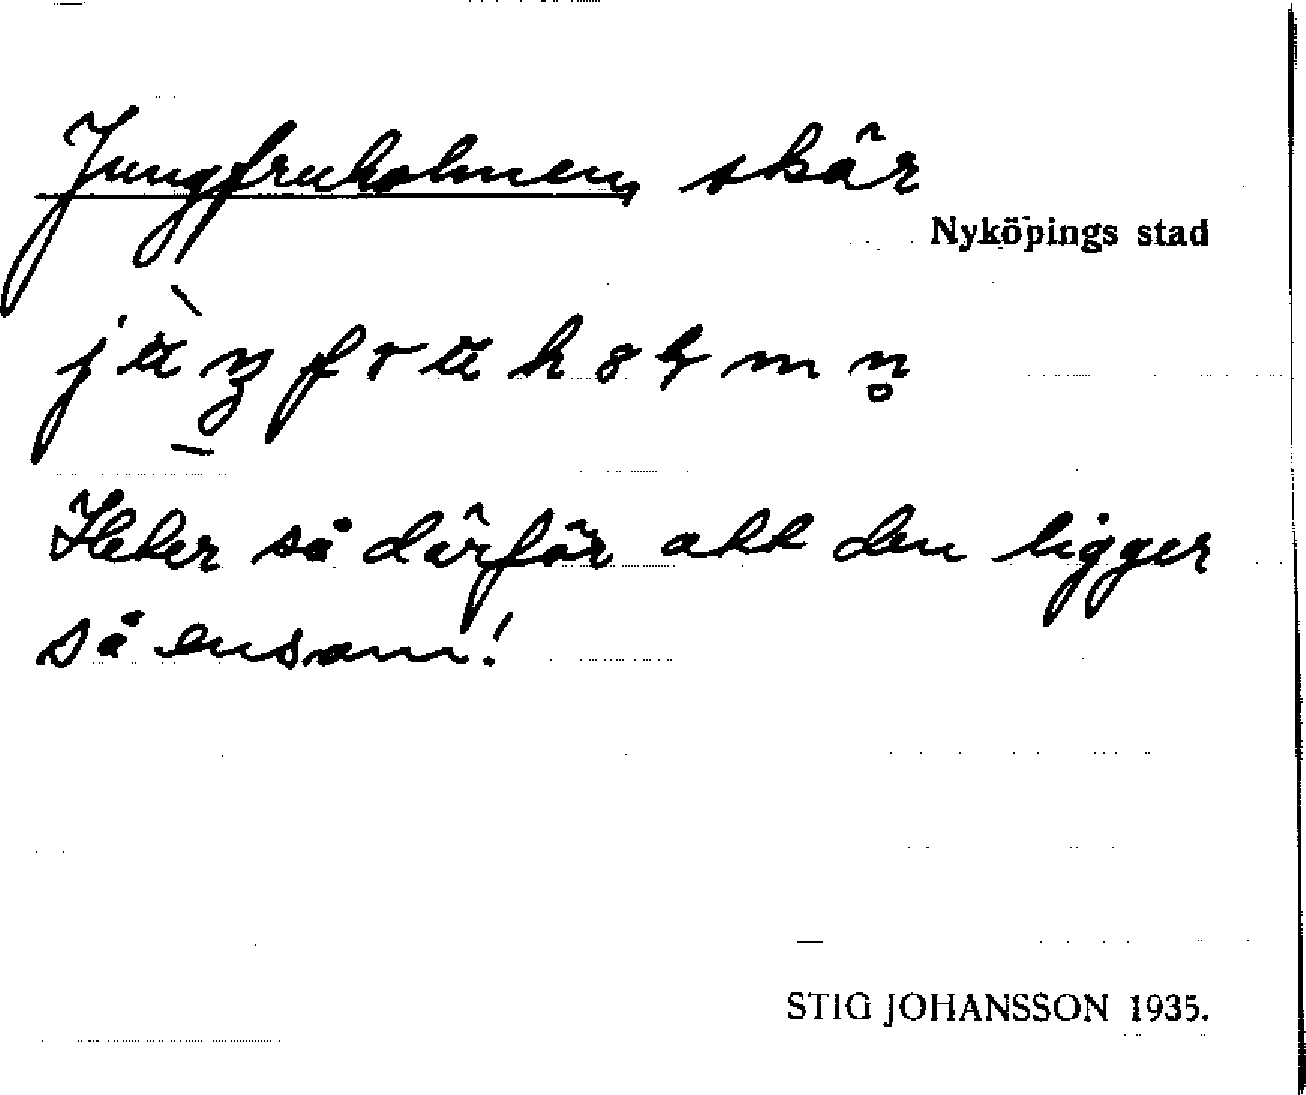 Jungfruholmen, skär
Nyköpings stad
Heter så därför att den ligger
så ensam!
STIG JOHANSSON 1935.